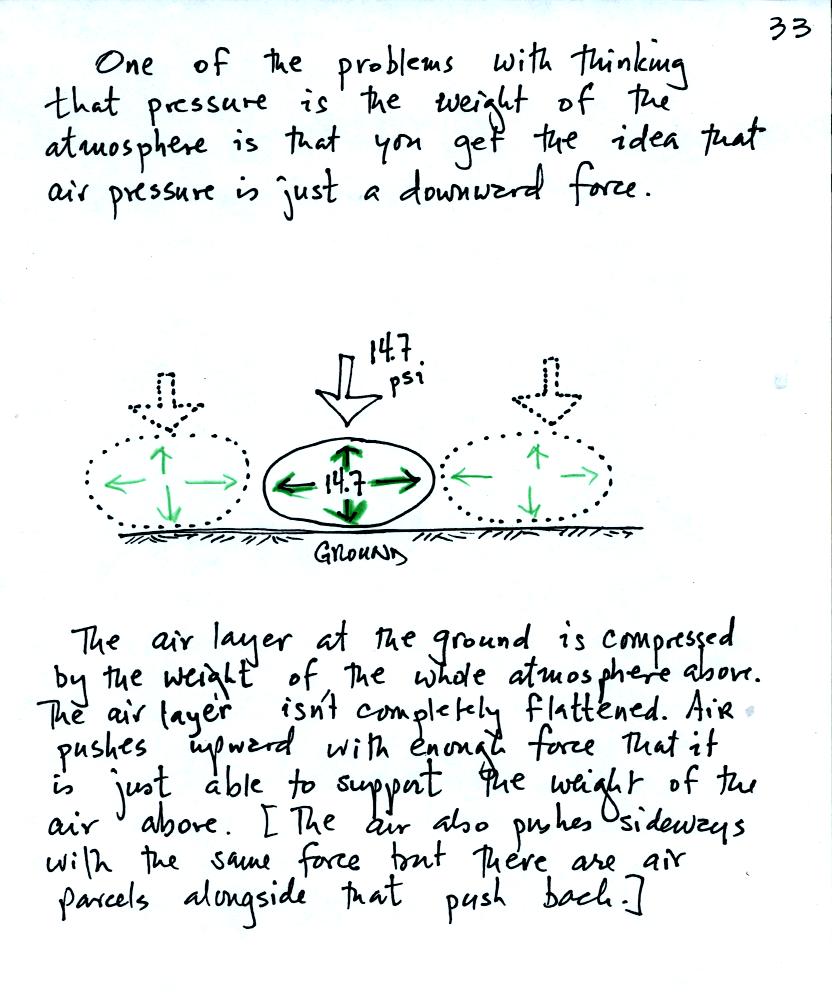 33
One of the problems with thinking
that pressure is the weight of the
atmosphere is that you get the idea that
air pressure is just a downward force.
14.7
psi
14.7
GROUND
The air layer at the ground is compressed
by the weight of the whole atmosphere above.
The air layer isn't completely flattened. Air
pushes upward with enough force that it
is just able to support the weight of the
air above. [The air also pushes sideways
with the same force but there are air
parcels alongside that push back.]